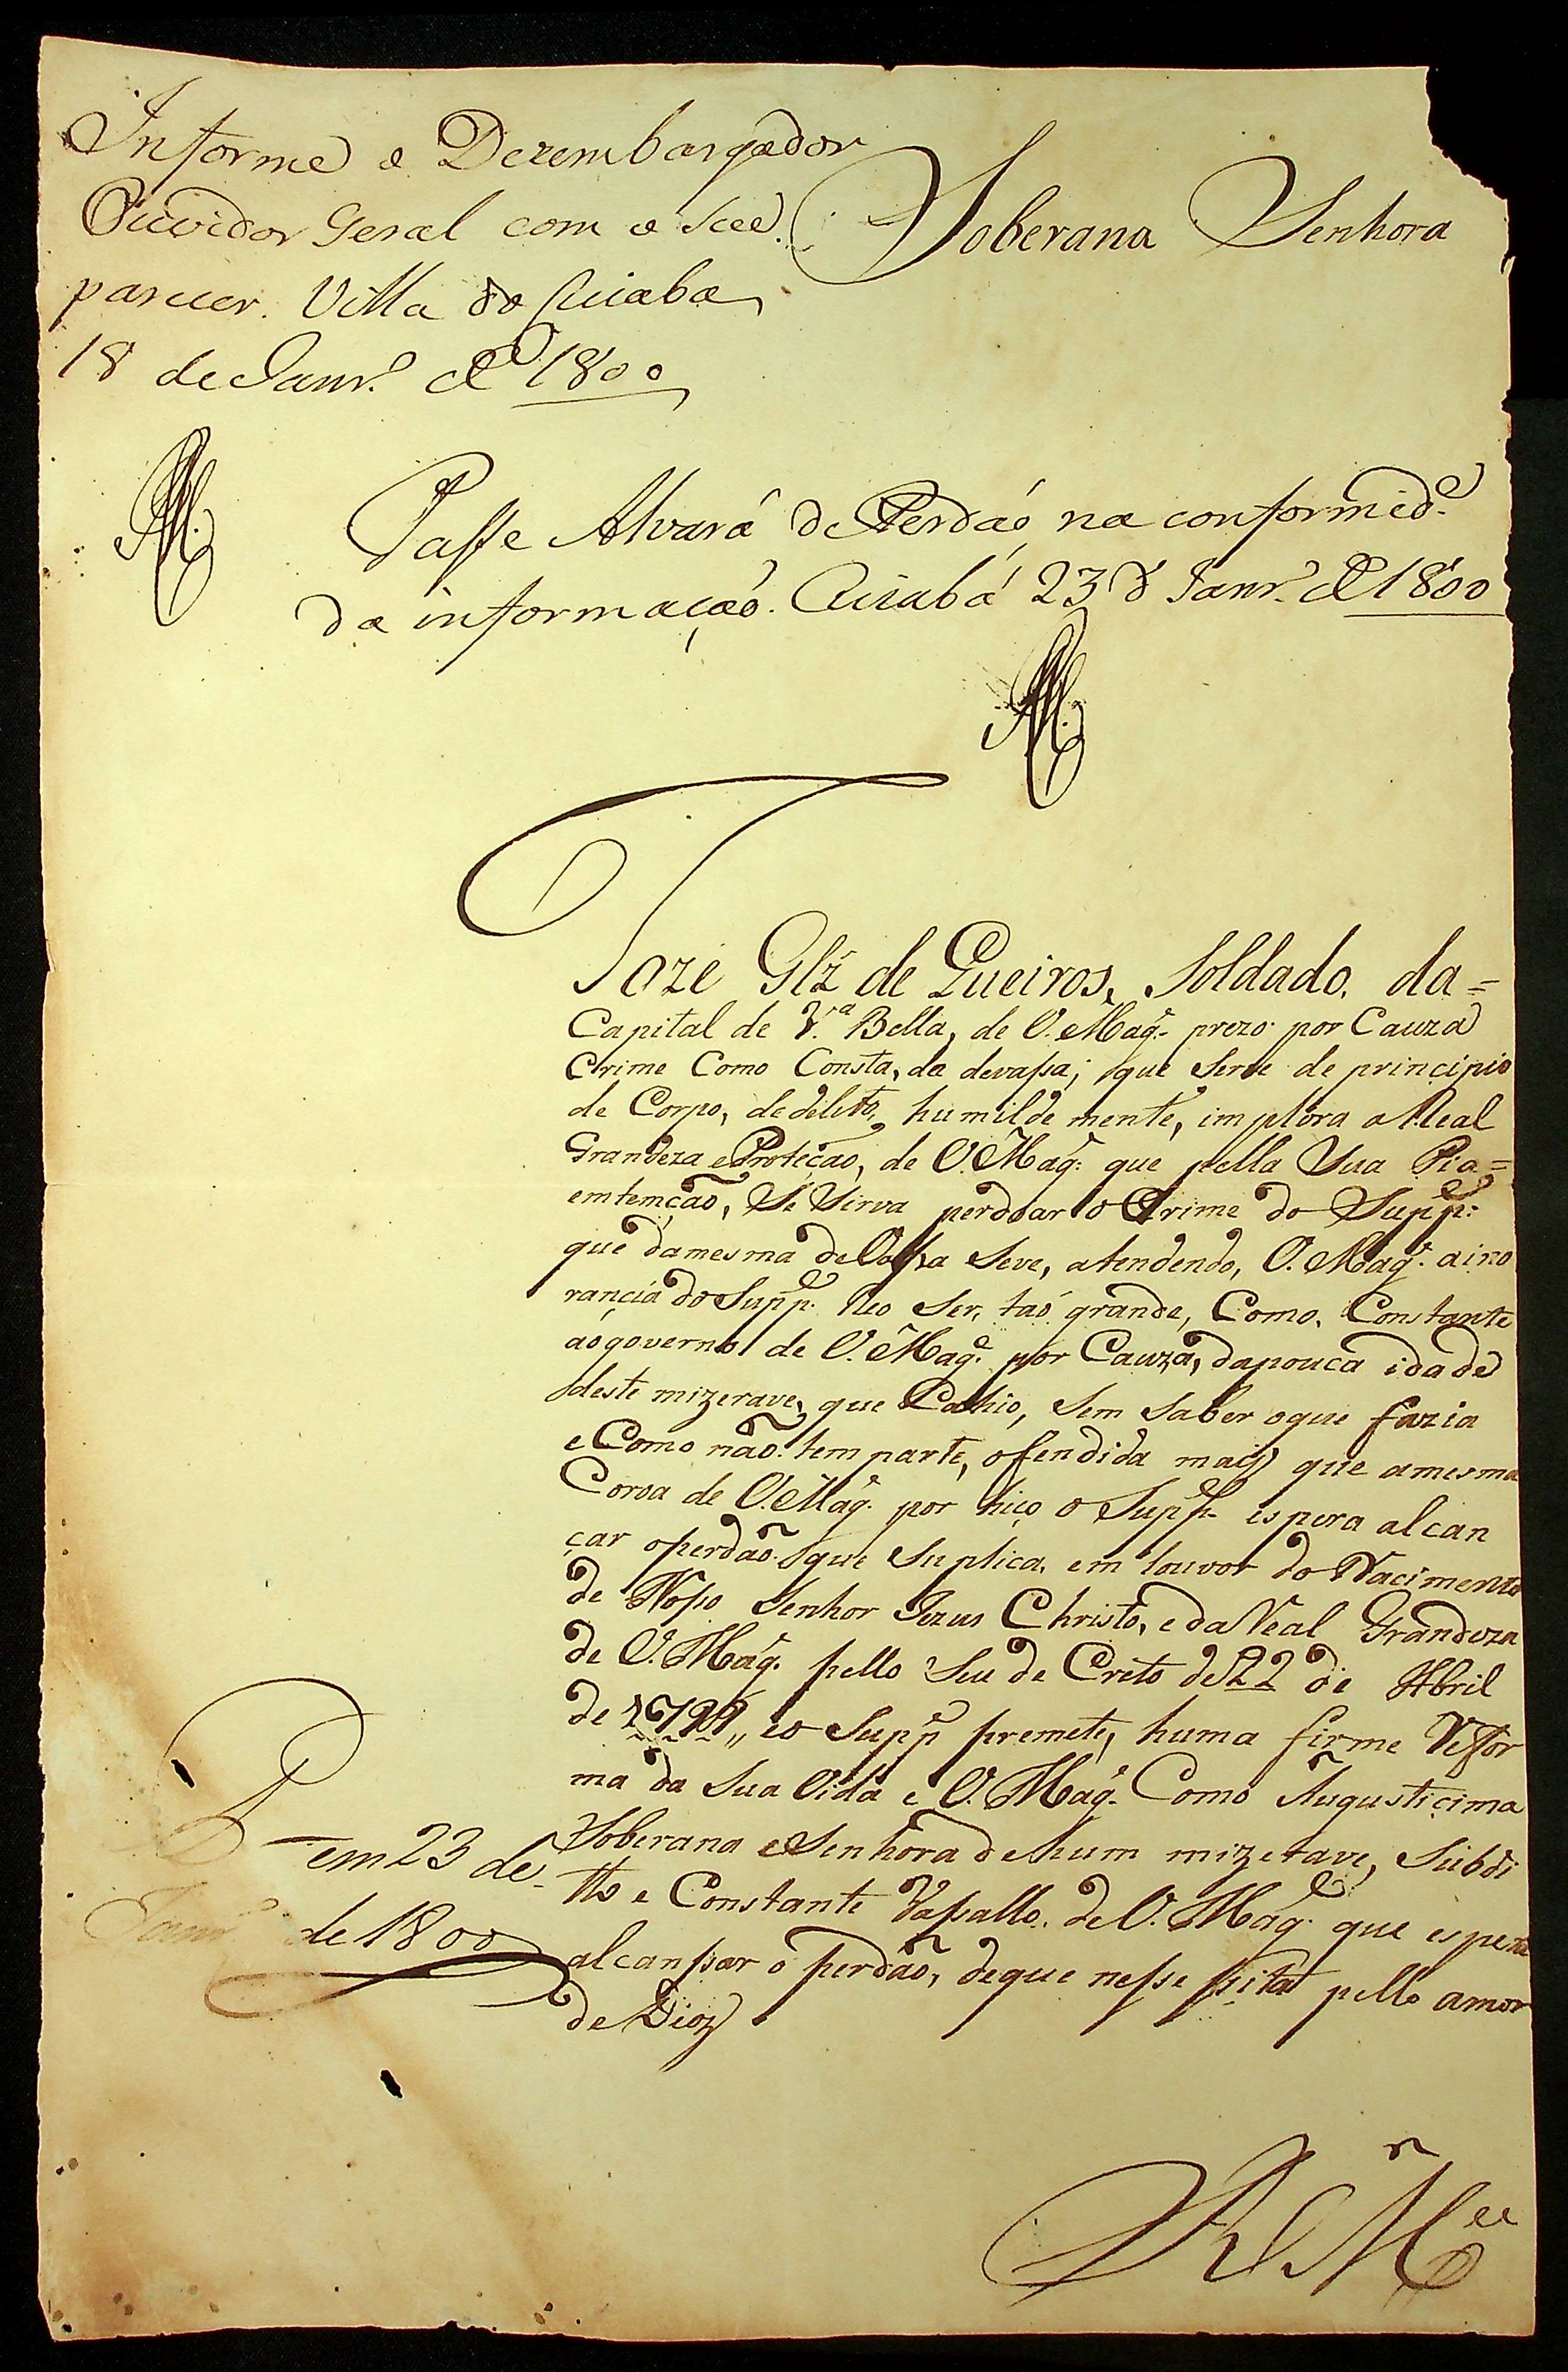 Informe o Dezembargador
Ouvidor Geral com o seu
parecer. Villa do Cuiaba
18 de Janr.º de 1800
Soberana Senhora
Passe Alvará de Perdaó na conformid.e
da informaçaó. Cuiabá 23 d Janr.º de 1800
Joze Glz de Queiros, Soldado, da=
Capital de V.ª Bella, de V. Mag.e prezo por Cauza
Crime Como Consta, da devassa; que Serve de principio
de Corpo, de delito, humilde mente, implora a Real
Grandeza e Proteção, de V. Mag.e que pella Sua Pia=
emtemção, Se Sirva perdoar o Crime do Supp.e
que damesma deVassa Seve, atendendo, V. Mag.e aino
rancia do Supp.e heo Ser, taó grande, Como, Constante
aógoverno de V. Mag.e por Cauza, dapouca idade
deste mizerave, que Cahio, Sem Saber oque fazia
e Como não tem parte, ofendida mais que amesma
Coroa de V. Mag.e por hiço o Supp.e espera alcan
çar operdão que Suplica, em louvor do Nacimento
de Nosso Senhor Jezus Christo, e da Real Grandeza
de V. Mag.e pello Seu de Creto de 22 de Abril
de eo Supp.e premete, huma firme Reffor
ma da Sua Vida e V. Mag.e Como Augusticima
Soberana e Senhora de hum mizerave, Subdi
tto e Constante Vassallo. de V. Mag.e que espera
alcansar o perdão, deque nesse sita pello amor
de Dios
em 23 de
Janr.º de 1800
R M.ce